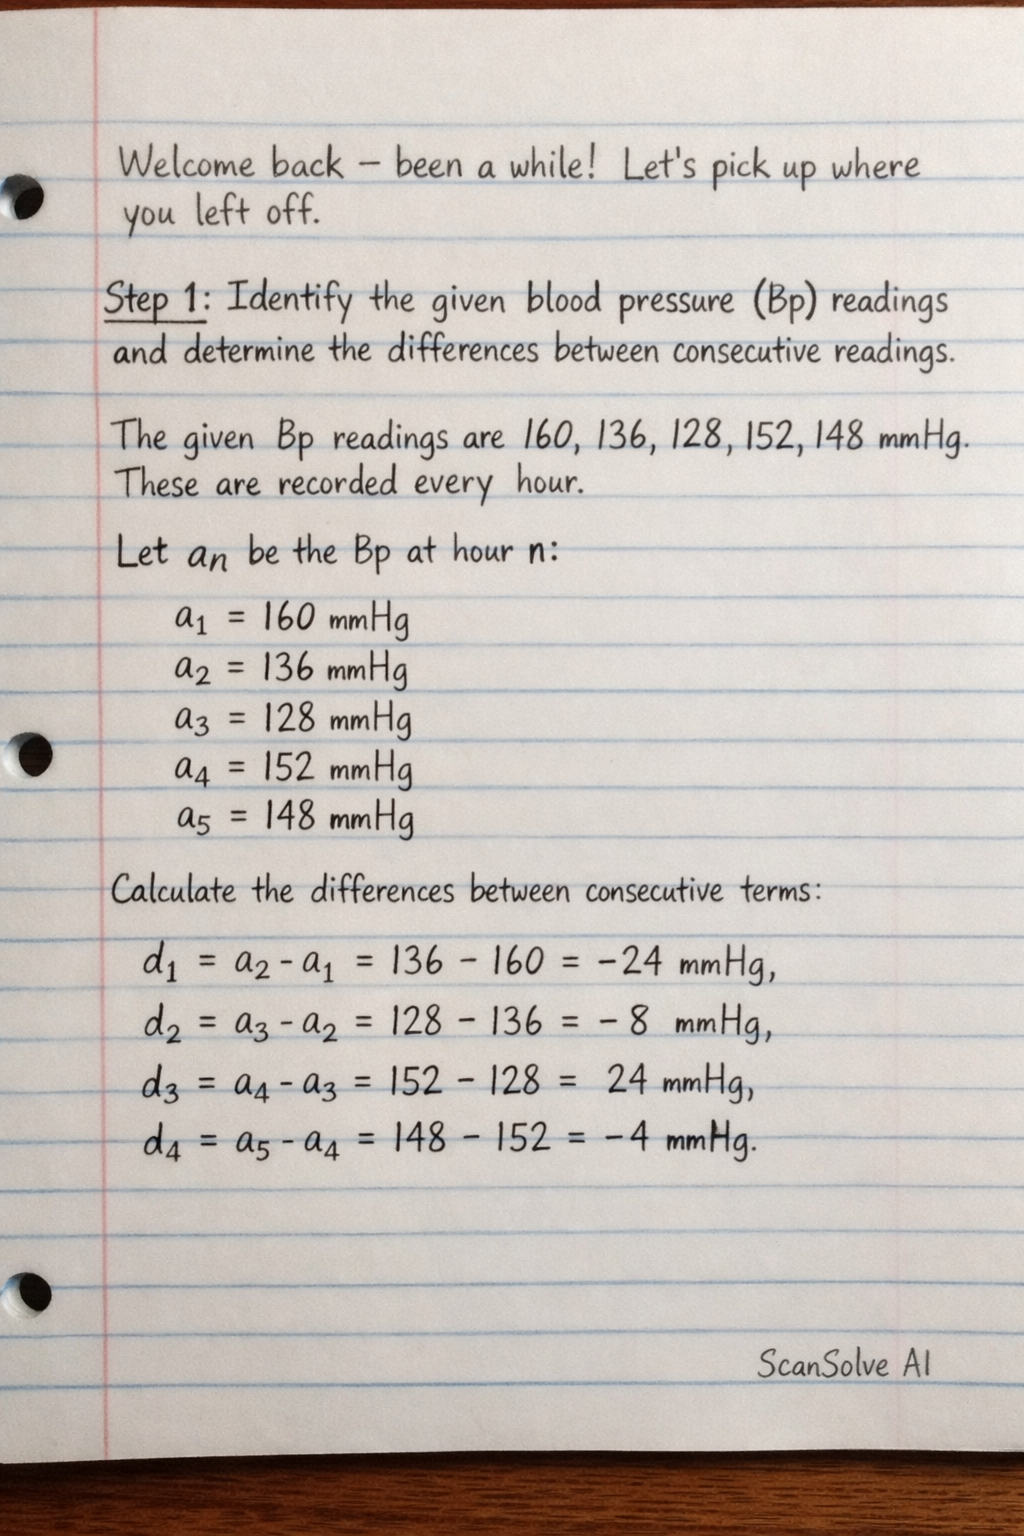 Welcome back – been a while! Let's pick up where
you left off.
Step 1: Identify the given blood pressure (Bp) readings
and determine the differences between consecutive readings.
The given Bp readings are 160, 136, 128, 152, 148 mmHg.
These are recorded every hour.
Let an be the Bp at hour n:
a₁ = 160 mmHg
a₂ = 136 mmHg
a₃ = 128 mmHg
a₄ = 152 mmHg
a₅ = 148 mmHg
Calculate the differences between consecutive terms:
d₁ = a₂ - a₁ = 136 - 160 = -24 mmHg,
d₂ = a₃ - a₂ = 128 - 136 = -8 mmHg,
d₃ = a₄ - a₃ = 152 - 128 = 24 mmHg,
d₄ = a₅ - a₄ = 148 - 152 = -4 mmHg.
ScanSolve AI